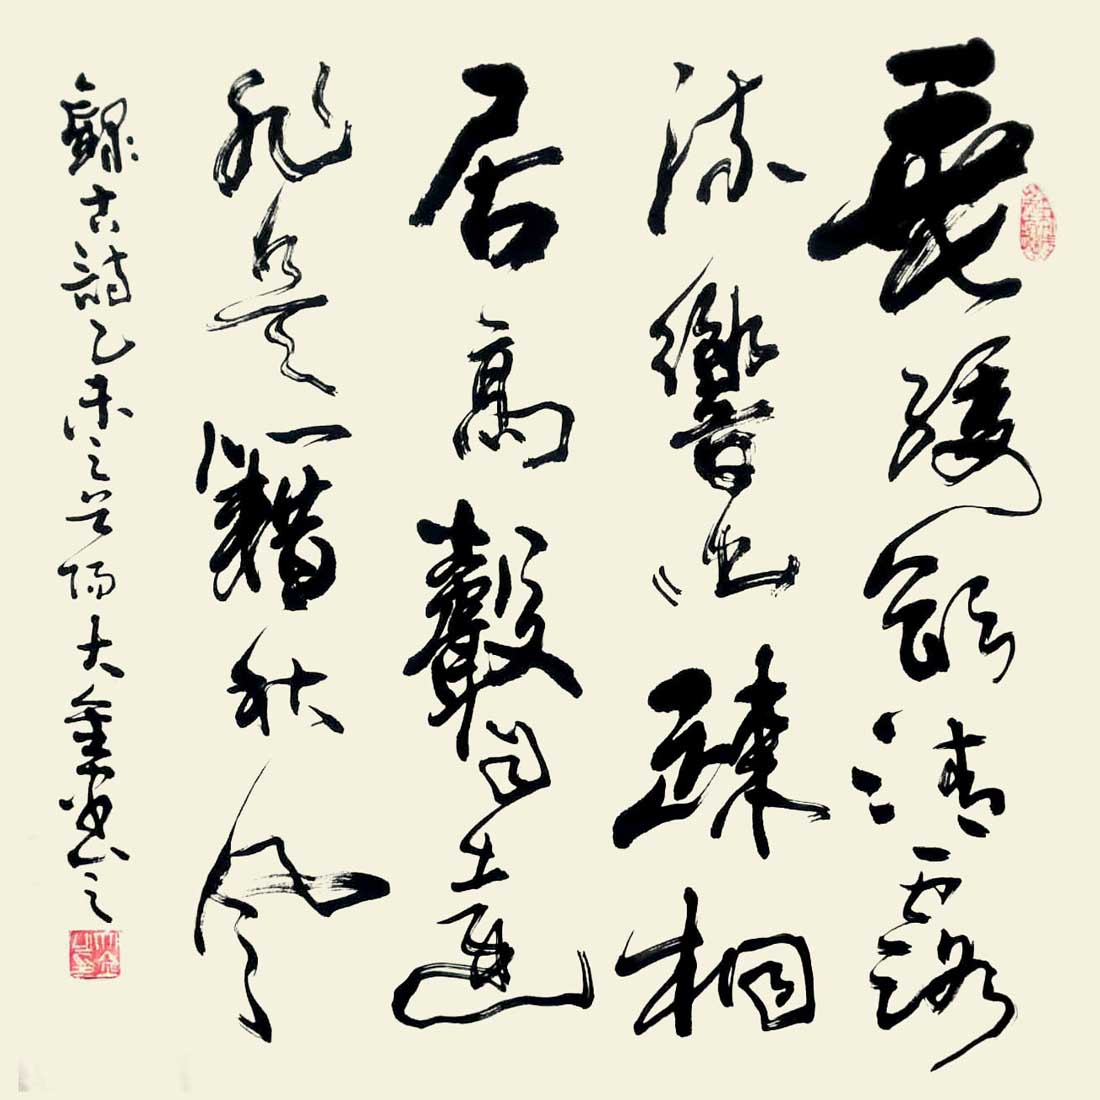 垂緌飲清露
流響出疎桐
居高聲自遠
非是藉秋風
錄古詩乙未之陽大書之